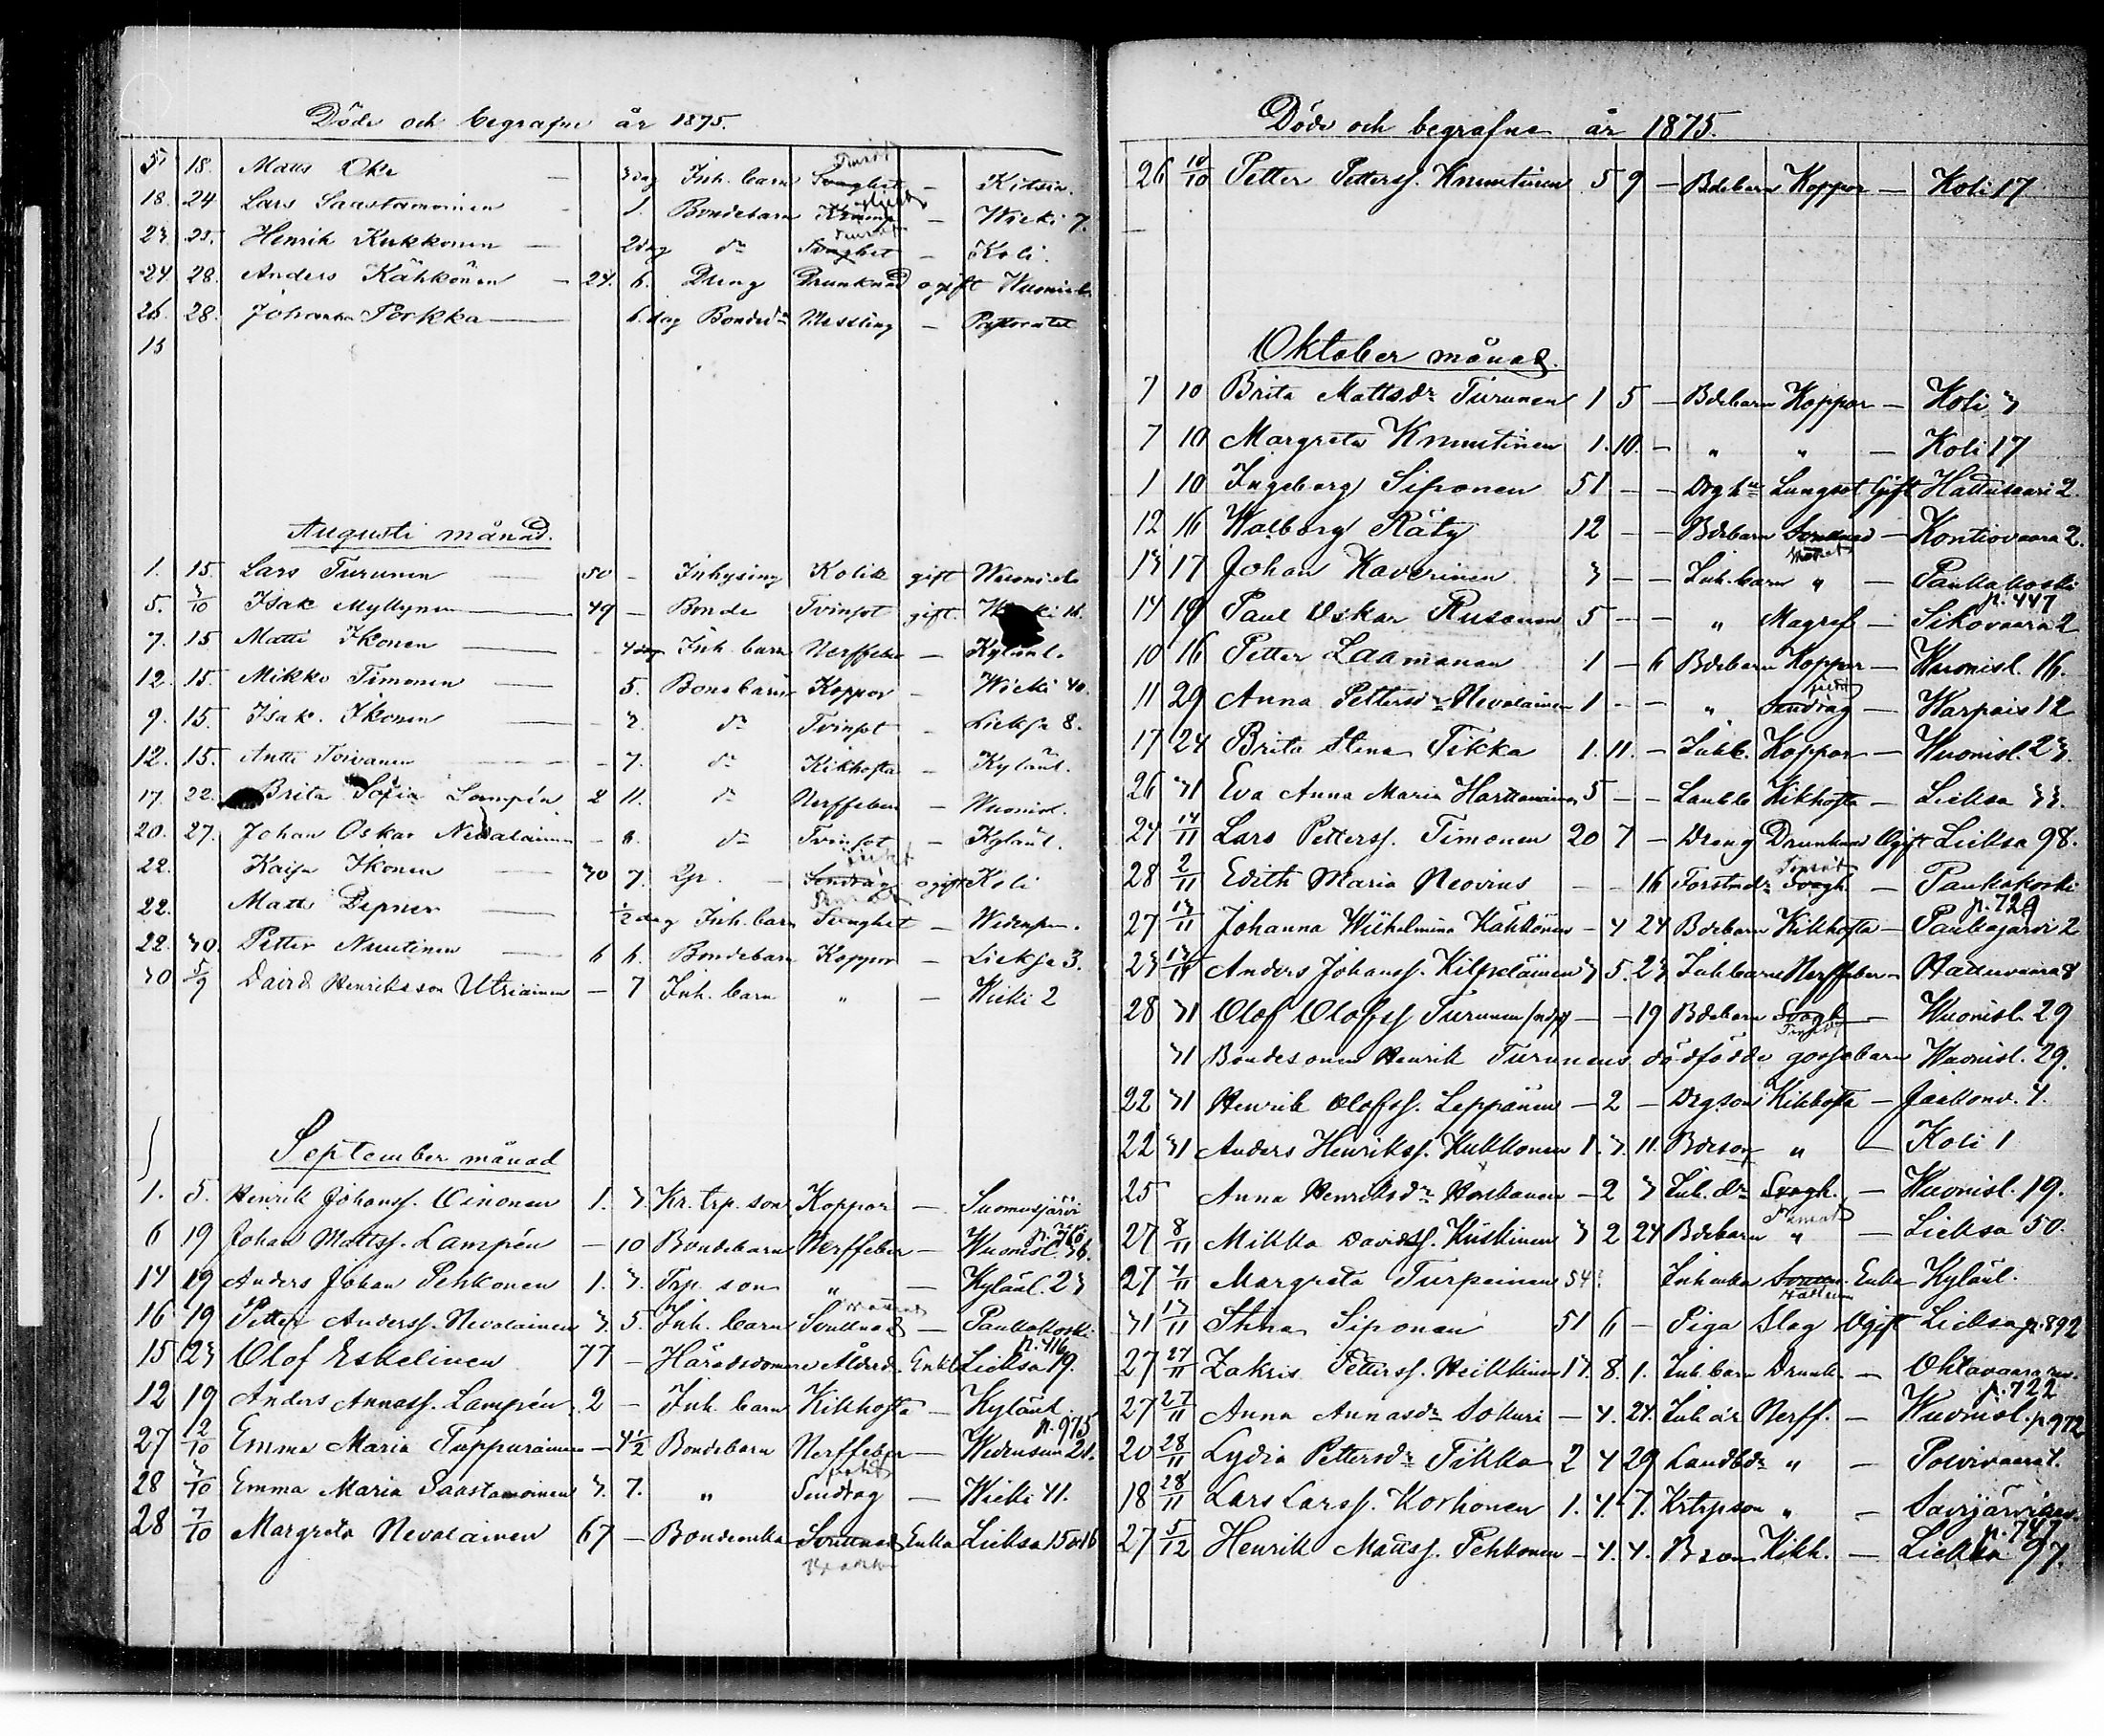 Döde och begrafne år 1875.
5 18. Matts Oke — 3 dag Inh. barn Svaghet — Kitsin.
18. 24 Lars Saastamoinen - 1. Bondebarn — Wieki 7.
23. 25. Henrik Kukkonen — 2 dag do Svaghet — Koli.
24 28. Anders Kähkönen — 24. 6. Dreng Drunknad ogift Wuonisl.
26. 28. Johanna Porkka — 6. dag Bonded. Messling — Pastoratet
15
Augusti månad.
1. 15. Lars Turunen — 50 - Inhysing Kolik gift Wuonisl.
5. 3/10 Isak Myllynen — 49 — Bonde Tvinsot gift. 16.
7. 15 Matti Ikonen — - 4 dag Inh. barn Nerffeber — Kylänl.
12. 15. Mikko Timonen — 5. Bondbarn Koppor - Wieki 40.
9. 15. Isak. Ikonen — - 3. do Tvinsot - Lieksa 8.
12. 15. Antti Toivanen — - 7. do Kikhosta — Kylänl.
17. 22. Brita Sofia Lampén 2 11. do Nerffeber — Wuonisl.
20. 27. Johan Oskar Nevalainen - 8. do Tvinsot - Kylänl.
22. Kaisa Ikonen — 30 7. Qp. — Sendrag ogift Koli
22. Matti — 1/2 dag Inh. barn Svaghet —
22. 30. Petter Nuutinen — 6 6. Bondebarn Koppor — Lieksa 3.
30 5/9 David Henriksson Utriainen — 7 Inh. barn " — Wieki 2
September månad
1. 5. Henrik Johanss. Oinonen 1. 3. Kr. trp. son Koppor — Suomusjärvi
6 19 Johan Mattss. Lampén — 10 Bondebarn Nerffeber — Wuonisl. 36.
14 19 Anders Johan Pehkonen 1. 3. Trp. son " — Kylänl. 23
16 19 Petter Anderss. Nevalainen 3. 5. Inh. barn Svullnad — Pankakoski
p. 416
15 23 Olof Eskelinen 77 — Häradsdomare Ålderd. Enkl. Lieksa 19.
12 19 Anders Annass. Lampén 2 - Inh. barn Kikhosta — Kylänl.
p. 975
27 12/10 Emma Maria Tuppurainen — 4 1/2 Bondebarn Nerffeber —
28 3/10 Emma Maria Saastamoinen 3. 7. " Sendrag — Wieki 41.
28 7/10 Margreta Nevalainen 67 — Bondenka Svullnad Enka Lieksa 15 o 16
Döde och begrafne år 1875.
26 10/10 Petter Petterss. Knuutinen 5 9 — Bdebarn Koppor — Koli 17
Oktober månad.
7 10 Brita Mattsdr Turunen 1 5 — Bdebarn Koppor — Koli 3
7 10 Margreta Knuutinen 1. 10. — " " — Koli 17
1 10 Ingeborg Siponen 51 — — Drghu Lungsot Gift Hattusaari 2.
12 16 Walborg Räty 12 — — Bdebarn — Kontiovaara 2.
13 17 Johan Kaverinen 3 — — Inh. barn " — Pankakoski
p. 447
14 19 Paul Oskar Rusanen 5 — — " Magref — Sikovaara 2
10 16 Petter Laamanen 1 — 6 Bdebarn Koppor — Wuonisl. 16.
11 29 Anna Pettersdr Nevalainen 1 — — " Sendrag — Warpais 12
17 24 Brita Stina Tikka 1. 11. — Inhb. Koppor — Wuonisl. 23.
26 31 Eva Anna Maria Harttevainen 5 — — Kikhosta — Lieksa 33.
24 14/11 Lars Petterss. Timonen 20 7 — Dreng Drunknad Ogift Lieksa 98.
28 2/11 Edith Maria Neovius — — 16 Forstmdr Svagh. — Pankakoski
p. 729
27 13/11 Johanna Wilhelmina Kähkönen — 4 24 Bdebarn Kikhosta — Pankajärvi 2
23 13/11 Anders Johanss. Kilpeläinen 3 5. 23 Inh barn Nerffeber — Hattuvaara 8
28 31 Olof Olofss Turunen — — 19 Bdebarn Svagh. — Wuonisl. 29
31 Bondesonen Henrik Turunens dödfödde gossebarn Wuonisl. 29.
22 31 Henrik Olofss. Leppänen — 2 — Drgson Kikhosta — Jaakonv. 4.
22 31 Anders Henrikss. Kukkonen 1. 3. 11. Bdeson " — Koli 1
25 Anna Henriksdr — 2 3 Inh. dr Svagh. — Wuonisl. 19.
27 8/11 Mikko Davidss. Kuskinen 3 2 24 Bdebarn " — Lieksa 50.
27 7/11 Margreta Turpeinen 54? Inhenka Enka Kylänl.
31 13/11 Stina Siponen 51 6 — Piga Slag Ogift Lieksa p. 892
27 27/11 Zakris Petterss. Heikkinen 17. 8. 1. Inh barn Drunk. —
p. 722
27 27/11 Anna Annasdr Sokuri — 4. 24. Nerff. — Wuonisl. p 972
20 28/11 Lydia Pettersdr Tikka 2 4 29 Landbdr " — Polvivaara 1.
18 28/11 Lars Larss. Korhonen 1. 4. 7. Krtrpson " —
p. 747
27 5/12 Henrik Mattss. Pehkonen — 4. 4. Bson Kikh. — Lieksa 97.